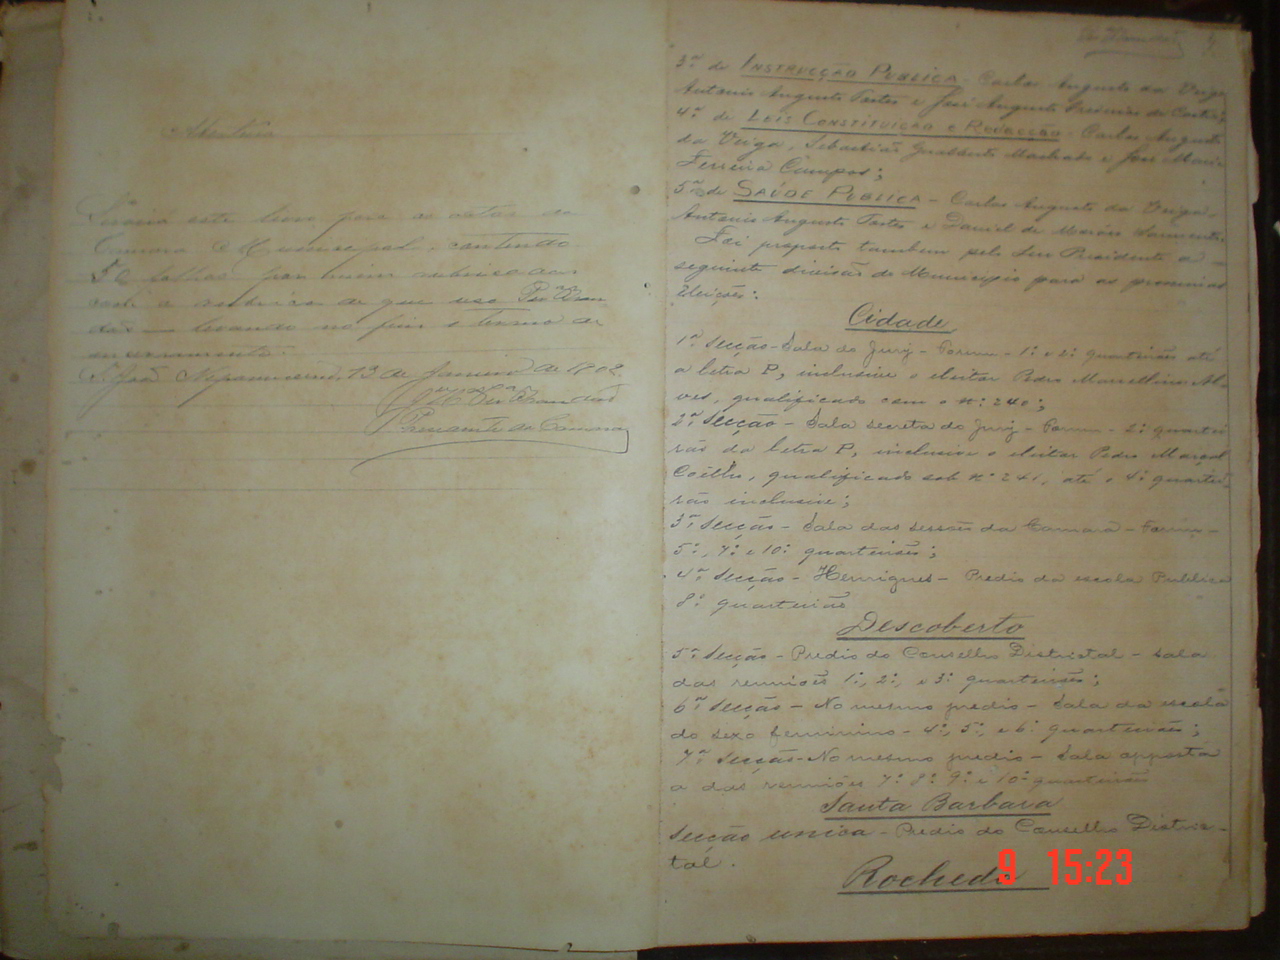 Abertura
Servirá este livro para as actas da
Camara Municipal, contendo
50 folhas por mim rubricadas
com a rubrica de que uso
levando no fim o termo de
encerramento.
S. João Nepomuceno, 13 de Janeiro de 1902
Presidente da Camara
3ª de INSTRUCÇÃO PUBLICA - Carlos Augusto da Veiga,
Antonio Augusto Tostes e José Augusto de Castro;
4ª de LEIS CONSTITUIÇÃO e REDACÇÃO - Carlos Augusto
da Veiga, Sebastião Gualberto Machado e José Maria
Ferreira Campos;
5ª de SAÚDE PUBLICA - Carlos Augusto da Veiga,
Antonio Augusto Tostes e Daniel de Moraes Sarmento.
Foi proposta tambem pelo Snr Presidente a
seguinte divisão do Municipio para as proximas
eleições:
Cidade
1ª Secção - Sala do Jury - Forum - 1º e 2º quarteirões até
a letra P, inclusive o eleitor Pedro Marcellino Al-
ves, qualificado com o nº 240;
2ª Secção - Sala secreta do Jury - Forum - 2º quartei-
rão da letra P, inclusive o eleitor Pedro Marçal
Coêlho, qualificado sob nº 241, até o 4º quartei-
rão inclusive;
3ª Secção - Sala das sessões da Camara - Forum -
5º, 7º e 10º quarteirões;
4ª Secção - Henriques - Predio da escola Publica
8º quarteirão
Descoberto
5ª Secção - Predio do Conselho Districtal - sala
das reuniões 1º, 2º, e 3º quarteirões;
6ª Secção - No mesmo predio - Sala da escola
do sexo feminino - 4º, 5º, e 6º quarteirões;
7ª Secção - No mesmo predio - Sala opposta
a das reuniões 7º 8º 9º e 10º quarteirões
Santa Barbara
Secção unica - Predio do Conselho Distric-
tal.
Rochedo
9 15:23